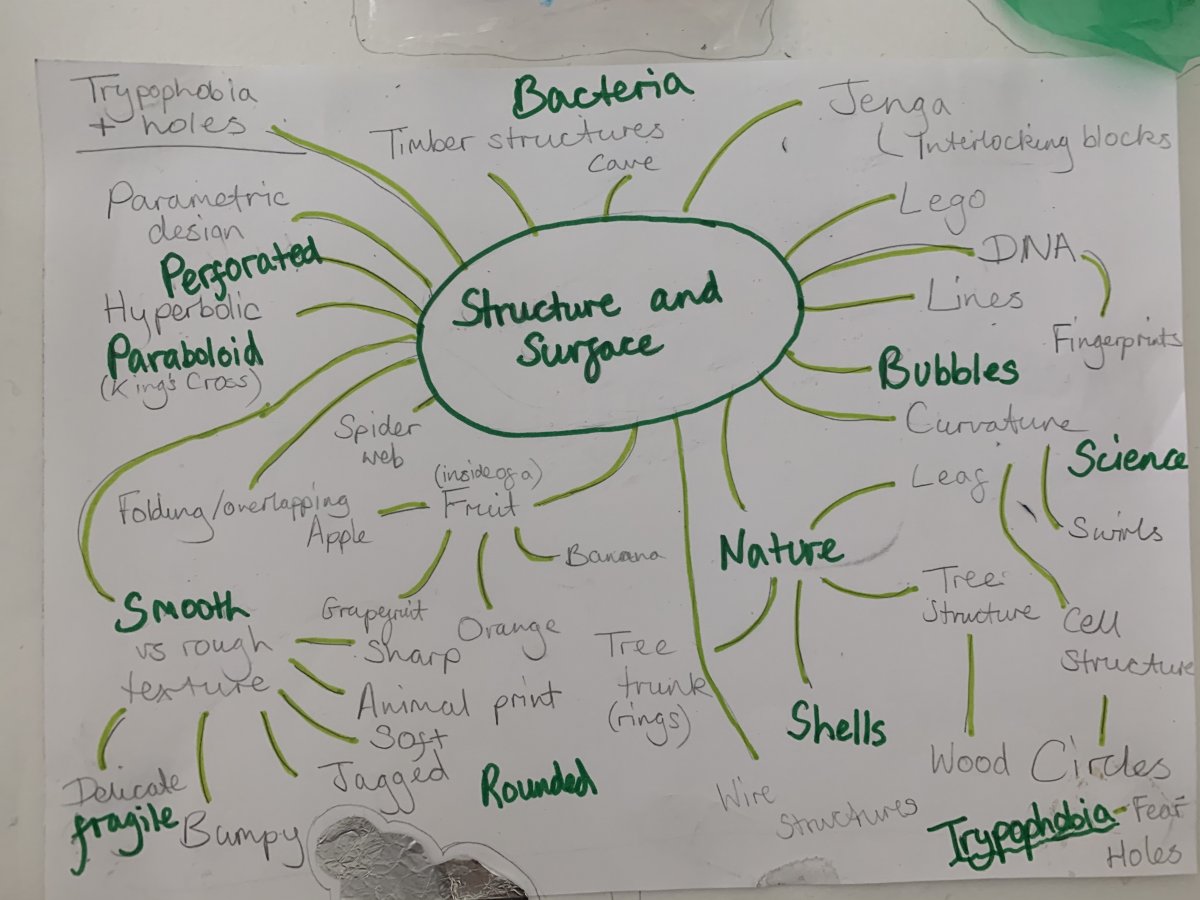 Trypophobia
+ holes
Bacteria
Timber structures
Cave
Jenga
Interlocking blocks
Parametric
design
Perforated
Hyperbolic
Paraboloid
(King's Cross)
Structure and
Surface
Lego
DNA
Lines
Fingerprints
Bubbles
Curvature
Science
Spider
web
Folding/overlapping
(inside of a)
Fruit
Apple
Banana
Grapefruit
Orange
Leaf
Swirls
Nature
Tree
Structure
Cell
Structure
Smooth
vs rough
texture
Sharp
Animal print
Soft
Jagged
Delicate
fragile
Bumpy
Rounded
Tree
trunk
(rings)
Shells
Wire
Structures
Wood
Circles
Trypophobia - Fear
Holes